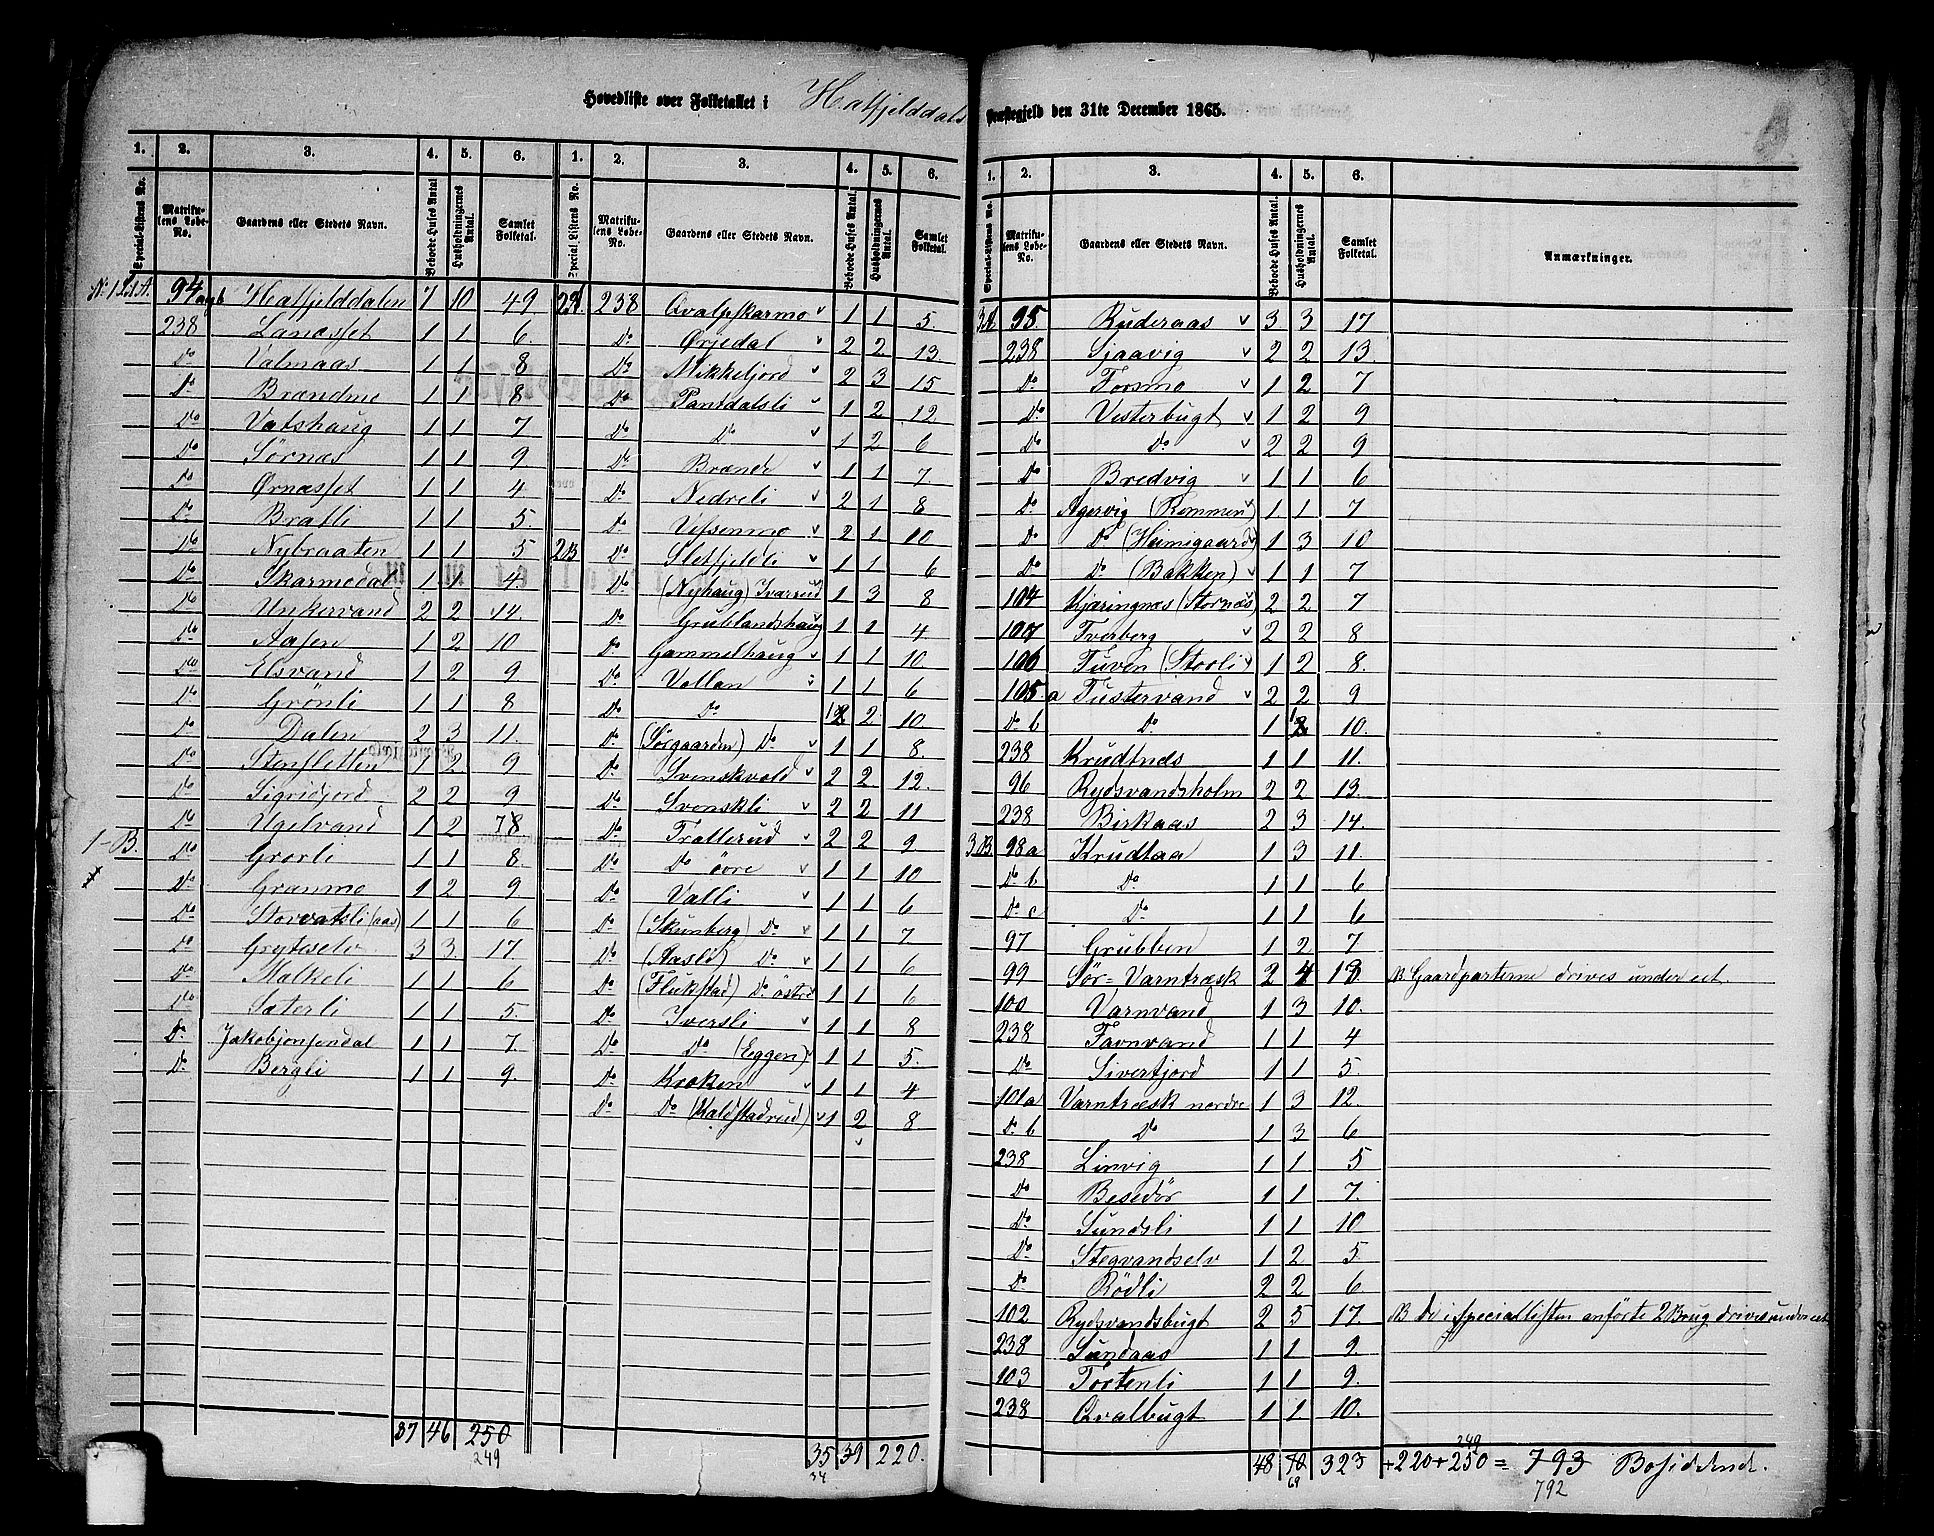 Hovedliste over Folketallet i Hatfjelddals Præstegjeld den 31te December 1865.
1. 2. 3. 4. 5. 6.
Special-Listens No. Matrikulens Løbe-No. Gaardens eller Stedets Navn. Beboede Huses Antal Husholdningernes Antal. Samlet Folketal.
No 1 A. 94 a&b Hatfjelddalen 7 10 49
238 Lanesset 1 1 6.
Do Valmaas 1 1 8
Do Brændmo 1 1 8
Do Vatshaug 1 1 7
Do Sørnæs 1 1 9.
Do Ørnæsset 1 1 4
Do Bratli 1 1 5.
Do Nybraaten 1 1 5
Do Skarmodal 1 1 4.
Do Unkervand 2 2 14.
Do Aasen 1 2 10
Do Elsvand 1 2 9
Do Grønli 1 1 8
Do Dalen 2 3 11.
Do Stensletten 1 2 9
Do Sigridjord 2 2 9
Do Ugelvand 1 2 8
1-B. Do Grorli 1 1 8.
Do Granmo 1 2 9
Do Storvatsli (aas) 1 1 6
Do Gryteselv 3 3 17
Do Malkeli 1 1 6
Do Sæterli 1 1 5.
Do Jakobjonsendal 1 1 7.
Do Bergli 1 1 9.
37 46 250
249
1. 2. 3. 4. 5. 6.
Special-Listens No. Matrikulens Løbe-No. Gaardens eller Stedets Navn. Beboede Huses Antal. Husholdningernes Antal. Samlet Folketal.
2A. 238 Qvalpskarmo v 1 1 5.
Do Ørjedal v 2 2 13.
Do Mikkeljord v 2 3 15
Do Pantdalsli v 1 2 12
Do Do v 1 2 6
Do Brænde v 1 1 7.
Do Nedreli v 2 1 8
Do Vefsenmo v 2 1 10
2B Do Sletfjeldli v 1 1 6
Do (Nyhaug) Ivarrud 1 3 8
Do Grublandshaug 1 1 4
Do Gammelhaug v 1 1 10
Do Vollan v 1 1 6
Do Do 1 2 10.
Do (Sørgaarden) Do v 1 1 8.
Do Svenskvold v 2 2 12.
Do Svenskli v 2 2 11
Do Trallerud v 2 2 9
Do Do övre v 1 1 10
Do Valli v 1 1 6
Do (Skunberg) Do v 1 1 7.
Do (Aasli) Do v 1 1 6
Do (Flukstad) Do östre 1 1 6
Do Iversli v 1 1 8
Do Do (Eggen) v 1 1 5.
Do Kroken v 1 1 4
Do Do (Kaldstadrud) v 1 2 8
35 39 220.
34
1. 2. 3. 4. 5. 6.
Special-Listens No. Matrikulens Løbe-No. Gaardens eller Stedets Navn. Beboede Huses Antal. Husholdningernes Antal. Samlet Folketal. Anmærkninger.
3A 95. Ruderaas v 3 3 17
238 Sjaavig v 2 2 13.
Do Forsmo v 1 2 7
Do Vesterbugt v 1 2 9
Do Do v 2 2 9
Do Bredvig v 1 1 6
Do Agervig (Remmen) 1 1 7
Do Do (Heimigaard) 1 3 10
Do Do (Bakken) v 1 1 7
104 Kjæringnæs (Stornæs) 2 2 7
107 Tverberg v 2 2 8
106 Tuven (Stooli) v 1 2 8.
105. a Tustervand v 2 2 9
Do b Do 1 1 10.
238 Krudtnæs 1 1 11.
96 Rydsvandsholm 2 2 13.
238 Birkaas 2 3 14.
3B. 98a Krudtaa 1 3 11.
Do b Do 1 1 6
Do c Do 1 1 6
97 Grubben 1 2 7
99 Sör=Varntræsk 2 4 13 B. Gaardparterne drives under eet.
100 Varnvand 1 3 10.
238 Favnvand 1 1 4
Do Sivertjord 1 1 5.
101a Varntræsk nordre 1 3 12.
Do b Do 1 3 6
238 Linvig 1 1 5
Do Besedör 1 1 7.
Do Sundsli 1 1 10
Do Stegvandselv 1 2 5
Do Rödli 2 2 6
102 Rydsvandsbugt 2 5 17. B de i Speciallisten anförte 2 Brug drives under eet
238 Sundaas 1 1 2.
103 Tortenli 1 1 9.
238 Qvalbugt 1 1 10.
48 70 323 +220+250= 793 Bosiddende.
69 249 792